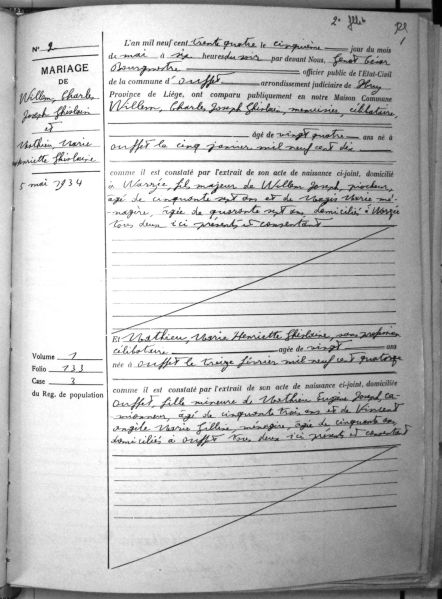 2e fllet
N° 2
MARIAGE
DE
Willem, Charles
Joseph Ghislain
et
Mathieu, Marie
Henriette Ghislaine
5 mai 1934
Volume 1
Folio 133
Case 3
du Reg. de population
L'an mil neuf cent trente quatre le cinquième jour du mois
de mai à six heures du soir par devant Nous,
Bourgmestre officier public de l'Etat-Civil
de la commune d'Ouffet arrondissement judiciaire de Huy
Province de Liége, ont comparu publiquement en notre Maison Commune
Willem, Charles Joseph Ghislain, menuisier, célibataire,
âgé de vingt quatre ans né à
Ouffet le cinq janvier mil neuf cent dix
comme il est constaté par l'extrait de son acte de naissance ci-joint, domicilié
à Warzée, fils majeur de Willem Joseph, piocheur,
âgé de cinquante sept ans et de Marie mé-
nagère, âgée de quarante sept ans, domiciliés à Warzée
tous deux ici présents et consentant
Et Mathieu, Marie Henriette Ghislaine, sans profession
célibataire agée de vingt ans
née à Ouffet le treize février mil neuf cent quatorze
comme il est constaté par l'extrait de son acte de naissance ci-joint, domiciliée
Ouffet, fille mineure de Mathieu Eugène Joseph, ca-
mionneur, âgé de cinquante trois ans et de Vincent
Marie ménagère, âgée de cinquante ans,
domiciliés à Ouffet tous deux ici présents et consentant